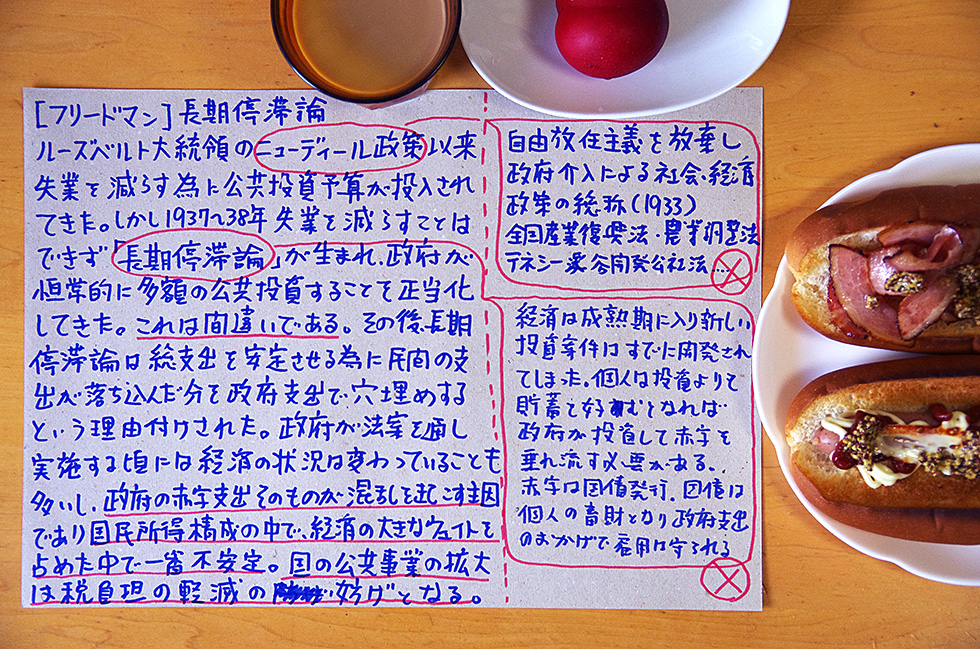 [フリードマン]長期停滞論
ルーズベルト大統領のニューディール政策以来
失業を減らす為に公共投資予算が投入され
てきた。しかし1937〜38年失業を減らすことは
できず「長期停滞論」が生まれ、政府が
恒常的に多額の公共投資することを正当化
してきた。これは間違いである。その後、長期
停滞論は総支出を安定させる為に民間の支
出が落ち込んだ分を政府支出で穴埋めする
という理由付けされた。政府が法案を通し
実施する頃には経済の状況は変わっていることも
多いし、政府の赤字支出そのものが混乱を起こす主因
であり国民所得構成の中で、経済の大きなウェイトを
占めた中で一番不安定。国の公共事業の拡大
は税負担の軽減の妨げとなる。
自由放任主義を放棄し
政府介入による社会・経済
政策の総称(1933)
全国産業復興法・農業調整法
テネシー渓谷開発公社法…
経済は成熟期に入り新しい
投資案件はすでに開発され
てしまった。個人は投資よりで
貯蓄を好むとなれば
政府が投資して赤字を
垂れ流す必要がある。
赤字は国債発行。国債は
個人の蓄財となり政府支出
のおかげで雇用は守られる